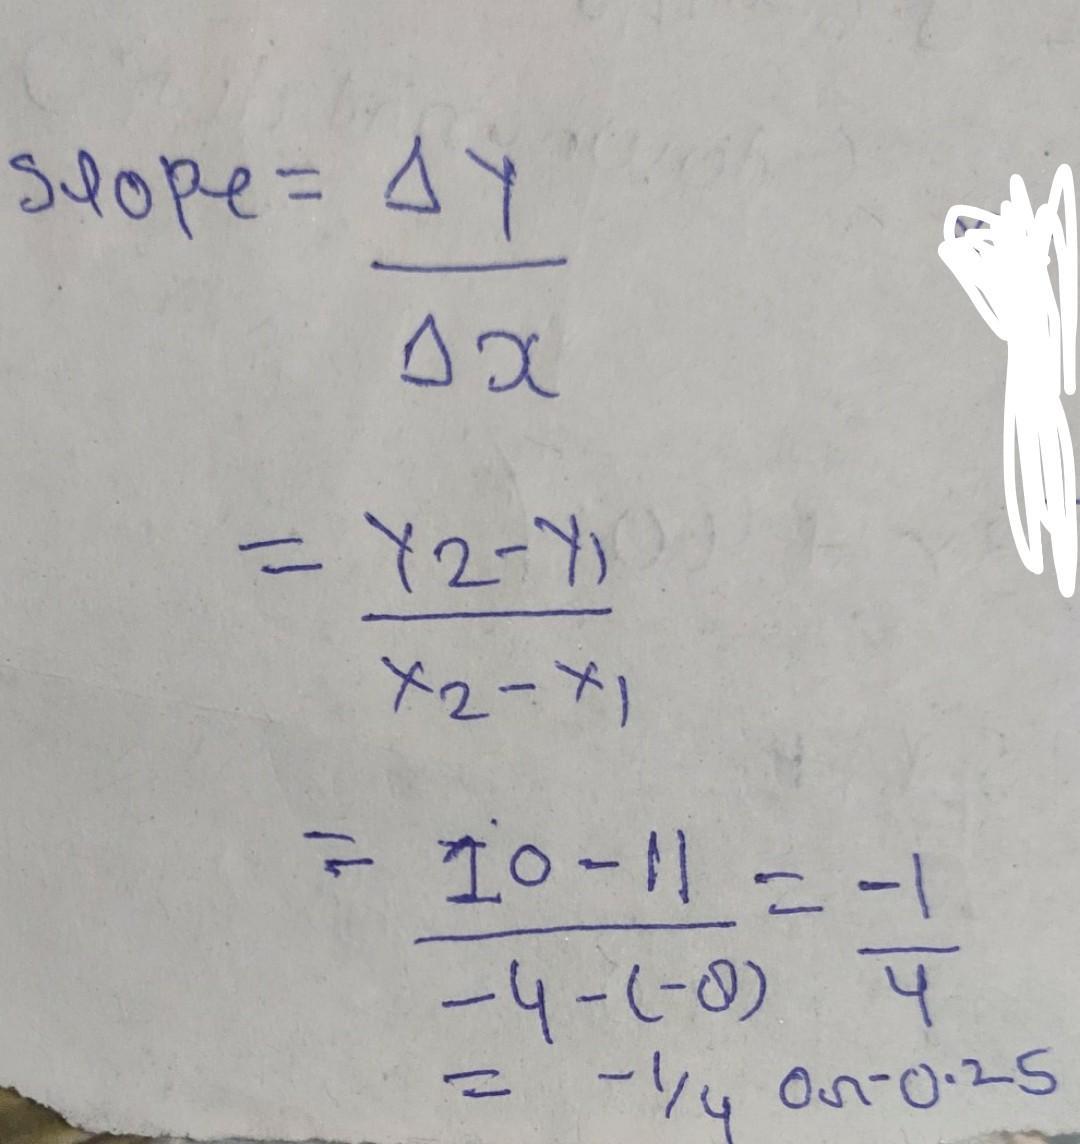 slope = Δy
Δx
= Y2 - Y1
x2 - x1
= 10 - 11 = -1
-4 - (-8) 4
= -1/4 or -0.25